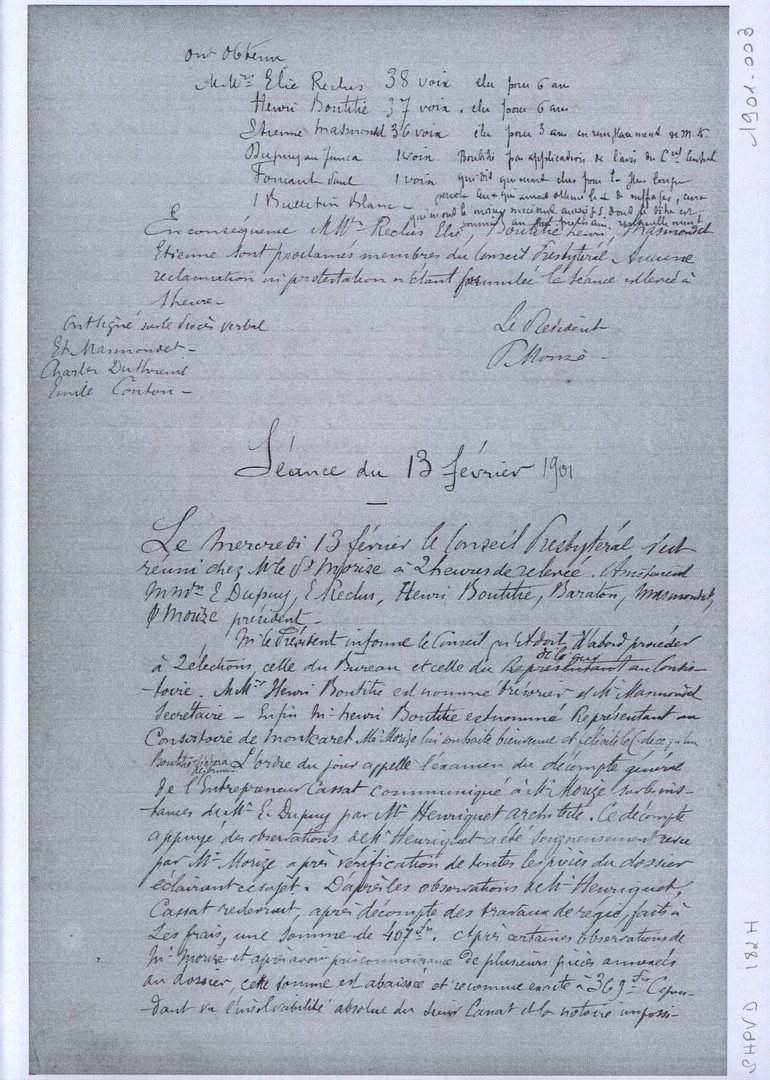 ont obtenu
M.Mrs Elie Reclus 38 voix elu pour 6 an
Henri Boutitié 37 voix. elu pour 6 ans
Etienne Masmondet 36 voix élu pour 3 ans en remplacement de M. H.
Dupuy au Junca 1 voix Boutitié par application de l'avis du Cel Central
1 voix qui dit qui sont elus pour la plus longue
1 Bulletin Blanc -
En conséquence M Mrs Reclus Elie, Boutitié henri, Masmondet
Etienne sont proclamés membres du Conseil Presbytéral. Aucune
reclamation ni protestation n'étant formulée la séance est levée à
1 heure -
Ont signé sur le Procès verbal
Le Président
Et Masmondet -
P Morize -
Charles
Emile Conton -
Séance du 13 février 1901
Le Mercredi 13 février le Conseil Presbytéral s'est
réuni chez Mr le Pr Morize à 2 heures de relevée. Assistaient
M mrs E Dupuy, E Reclus, Henri Boutitié, Baraton, Masmondet,
P Morize président -
M. le Président informe le Conseil qu'il doit d'abord procéder
à 2 élections, celle du Bureau et celle du délégué Représentant au Consis-
toire. M.Mrs Henri Boutitié est nommé trésorier et Mr Masmondet
Secrétaire - Enfin Mr henri Boutitié est nommé Représentant au
Consistoire de Montcaret Mr Morize lui souhaite bienvenue et félicite le C de ce qu'un
Boutitié siégera désormais L'ordre du jour appelle l'examen du décompte général
de l'Entrepreneur Cassat communiqué à Mr Morize sur les ins-
tances de Mr E. Dupuy par Mr Henriquet architecte. Ce décompte
appuyé des observations de Mr Henriquet a été soigneusement revu
par Mr Morize après vérification de toutes les pièces du dossier
éclairant ce sujet. D'après les observations de Mr Henriquet,
Cassat redevrait, après décompte des travaux de régie, faits à
ses frais, une somme de 407 frs. Après certaines observations de
Mr Morize et après avoir pris connaissance de plusieurs pièces annexées
au dossier, cette somme est abaissée et reconnue exacte à 369 frs Cepen-
dant vu l'insolvabilité absolue du sieur Cassat et la notoire impossi-
1901-003
SHPVD 182 H